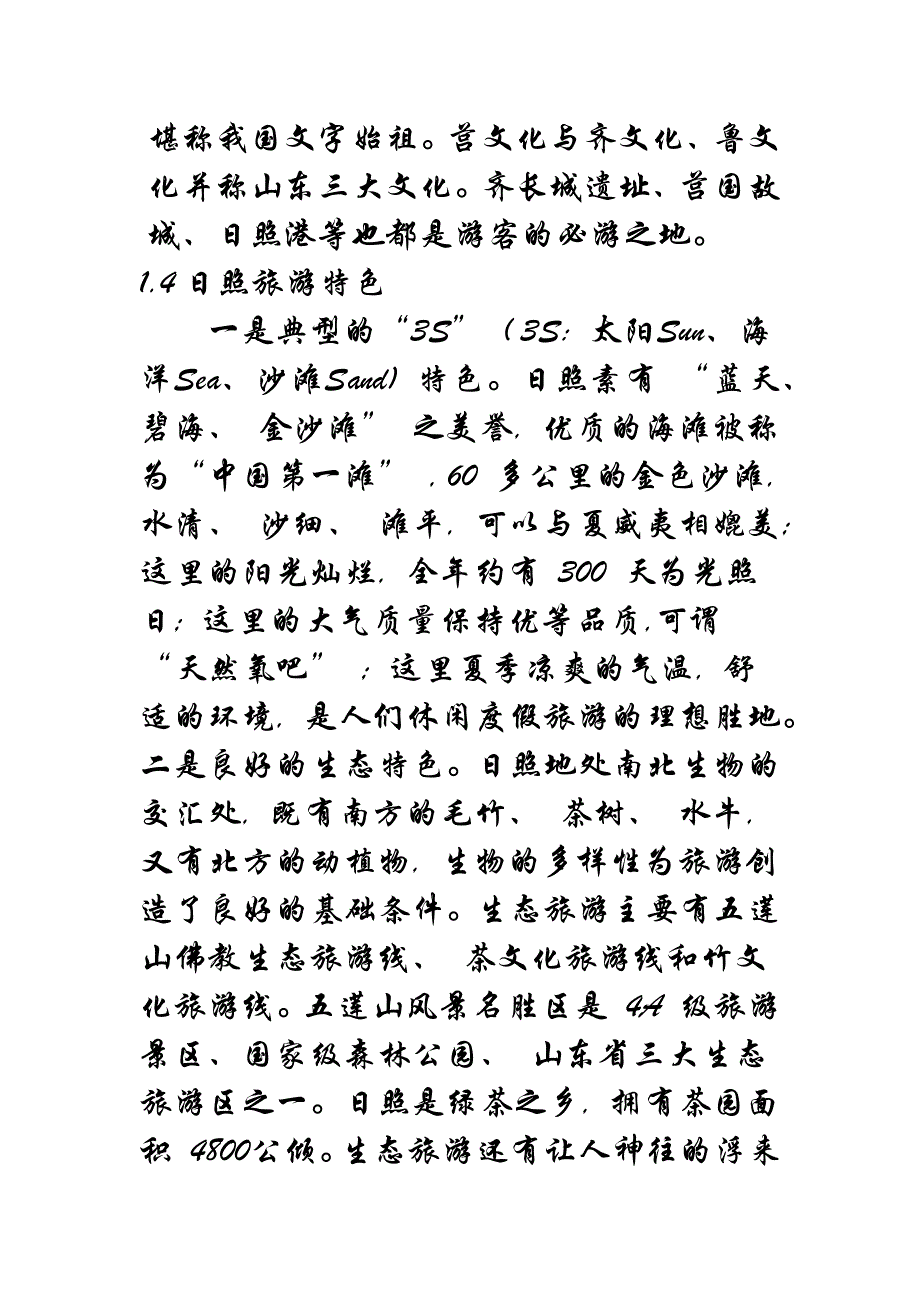 堪称我国文字始祖。莒文化与齐文化、鲁文
化并称山东三大文化。齐长城遗址、莒国故
城、日照港等也都是游客的必游之地。
1.4 日照旅游特色
一是典型的“3S”（3S：太阳Sun、海
洋Sea、沙滩Sand）特色。日照素有 “蓝天、
碧海、 金沙滩” 之美誉，优质的海滩被称
为“中国第一滩”,60 多公里的金色沙滩，
水清、 沙细、 滩平，可以与夏威夷相媲美；
这里的阳光灿烂，全年约有 300 天为光照
日；这里的大气质量保持优等品质,可谓
“天然氧吧” ；这里夏季凉爽的气温，舒
适的环境，是人们休闲度假旅游的理想胜地。
二是良好的生态特色。日照地处南北生物的
交汇处，既有南方的毛竹、 茶树、 水牛，
又有北方的动植物，生物的多样性为旅游创
造了良好的基础条件。生态旅游主要有五莲
山佛教生态旅游线、 茶文化旅游线和竹文
化旅游线。五莲山风景名胜区是 4A 级旅游
景区、国家级森林公园、 山东省三大生态
旅游区之一。日照是绿茶之乡，拥有茶园面
积 4800公倾。生态旅游还有让人神往的浮来